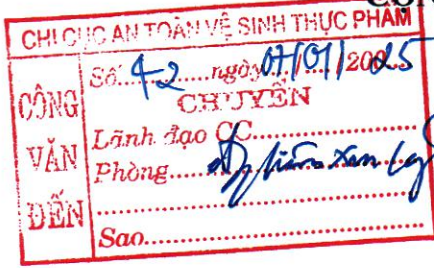 CÔN
CHI CỤC AN TOÀN VỆ SINH THỰC PHẨM
CÔNG VĂN ĐẾN
Số: 42 ngày 07/01/2025
CHUYỂN
Lãnh đạo CC
Phòng
Sao